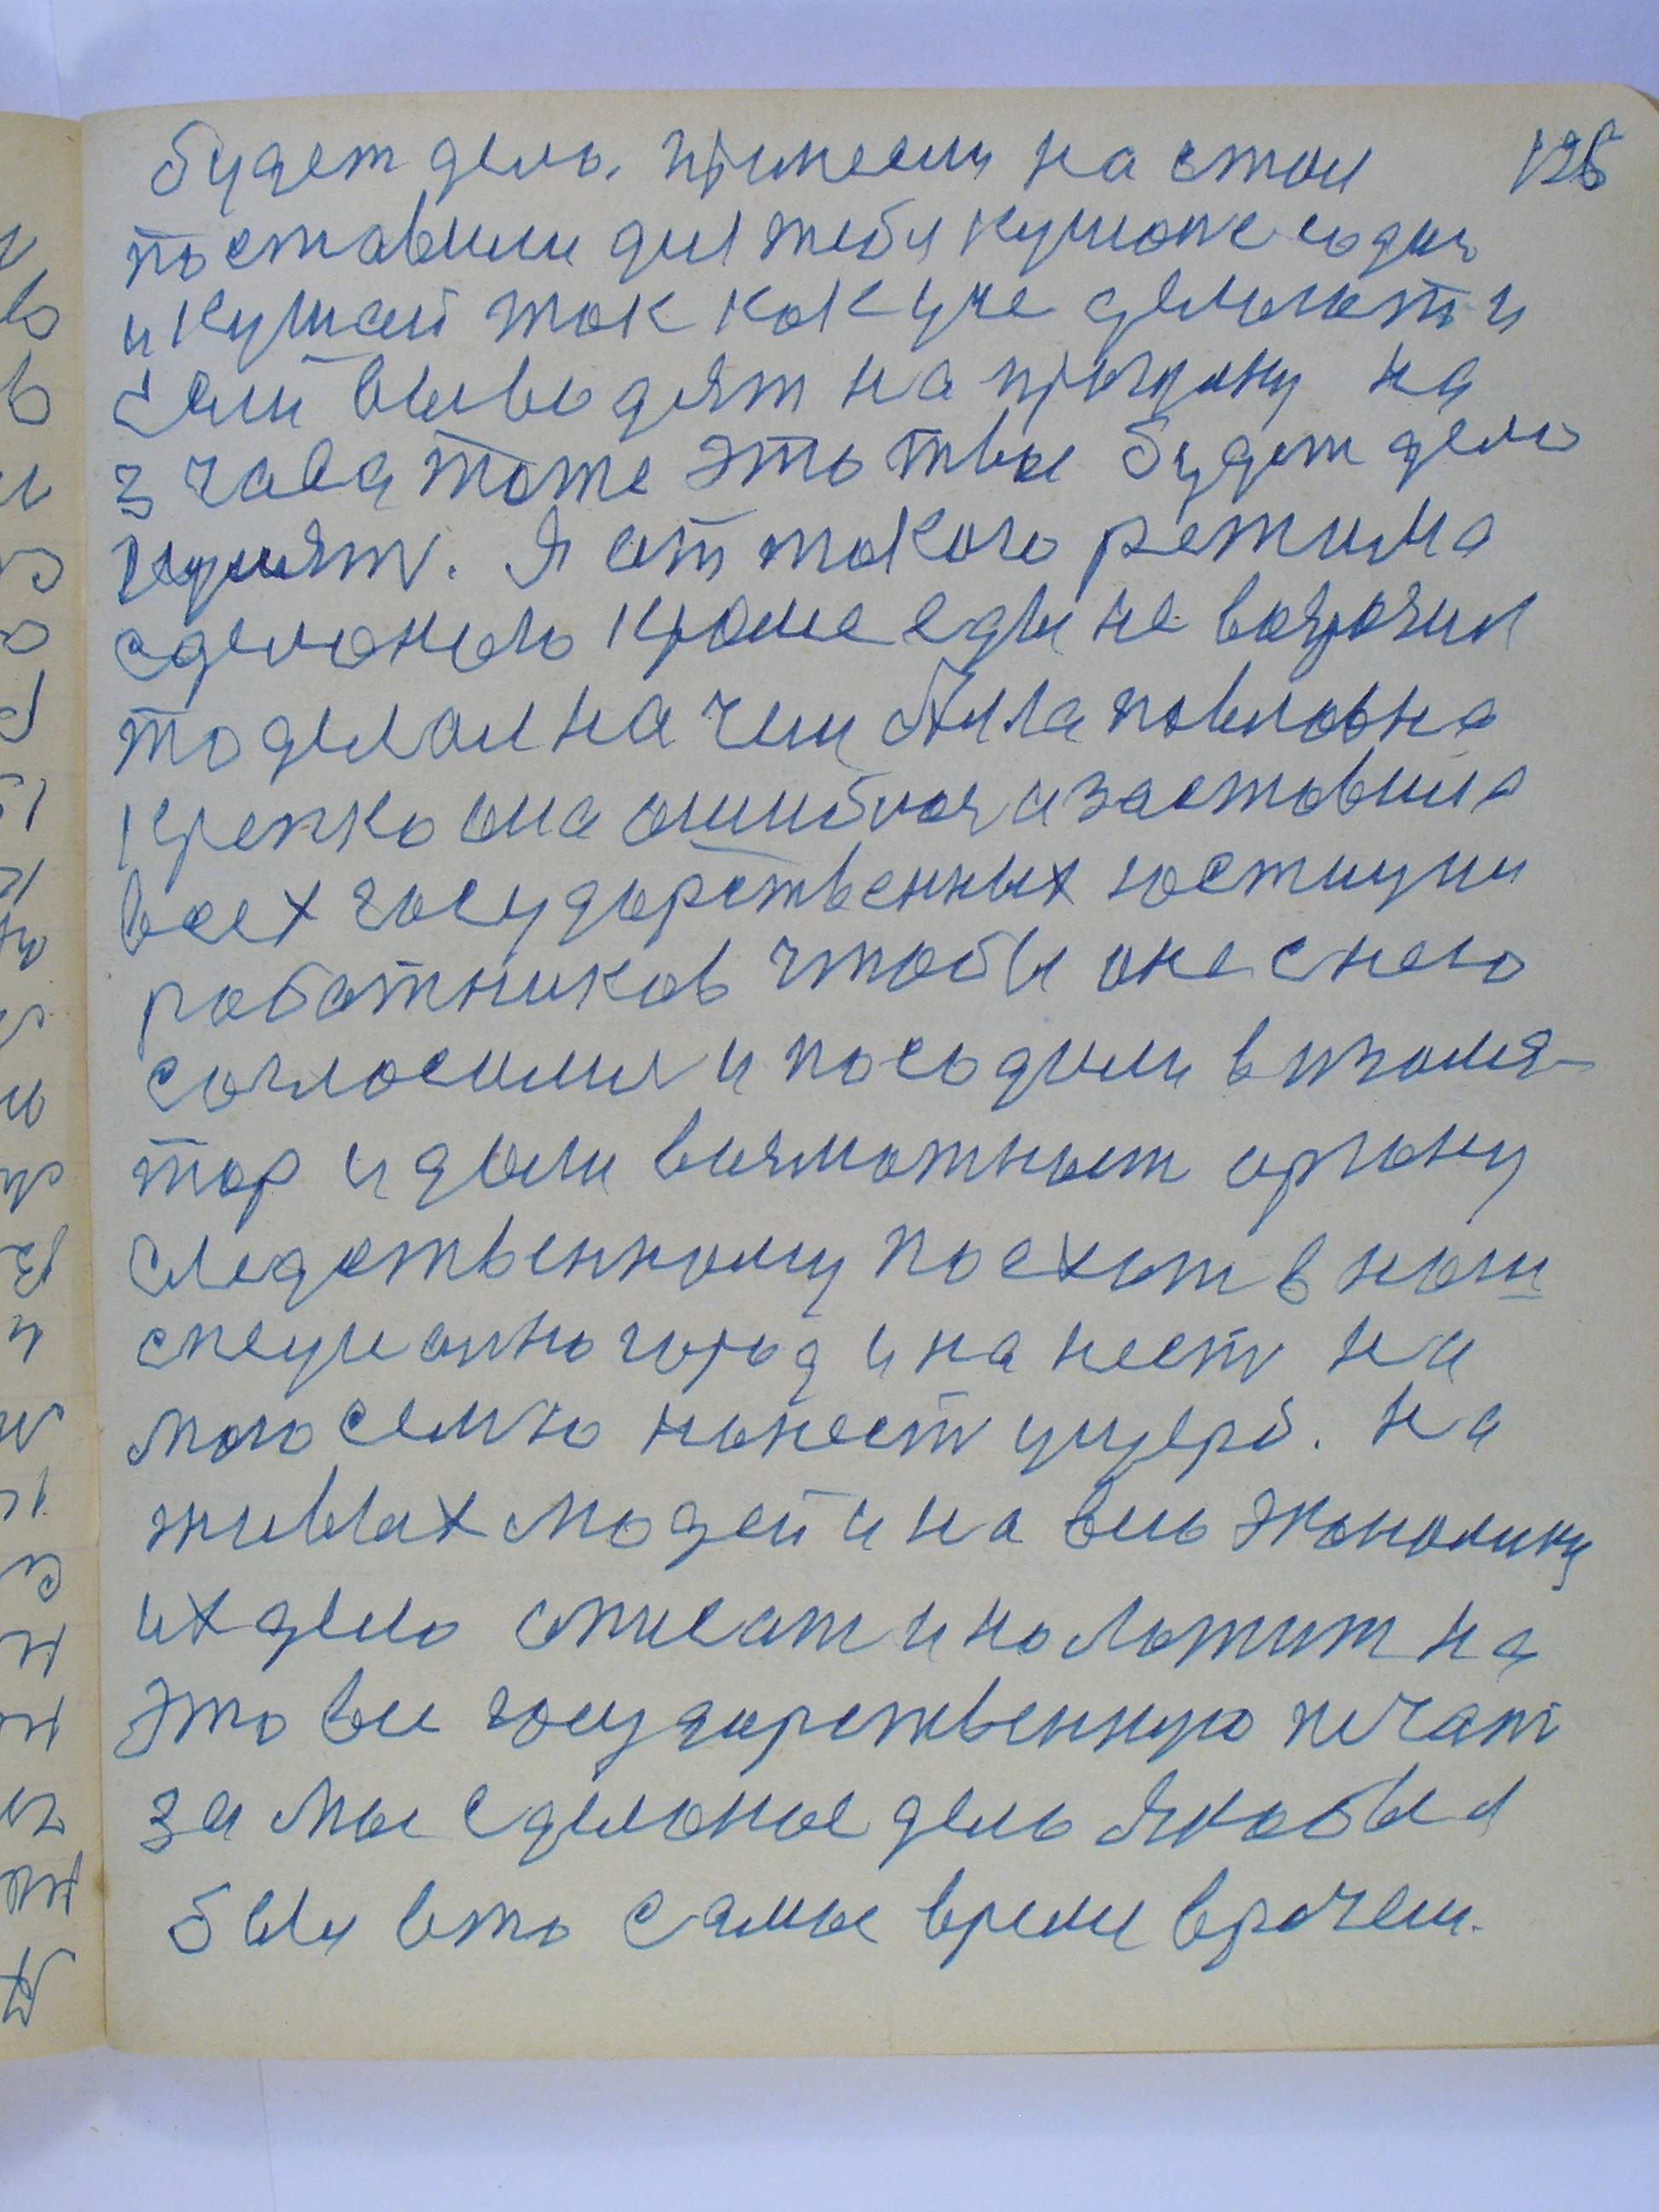 будет дело. принесли на стол 125
поставили для тебя кушоне содис
и кушай так как уже сделают и
если выводят на прогулку на
3 часа тоже это твое будет дело
гулят. Я от такого режима
сделоного кроме еды не возрожил
то делал на чем Алла повловна
крепко она ошиблоя и заставила
всех государственных юстиции
работников чтобы оне с него
согласилия и посодили в изоля-
тор и дали возможност органу
следственному поехат в наш
специално город и нанест на
мою семю нанест ущерб. на
живых людей и на всю экономику
их дело списат и положит на
это все государственную печат
за мое сделоное дело якобы я
был в то самое время врачем.